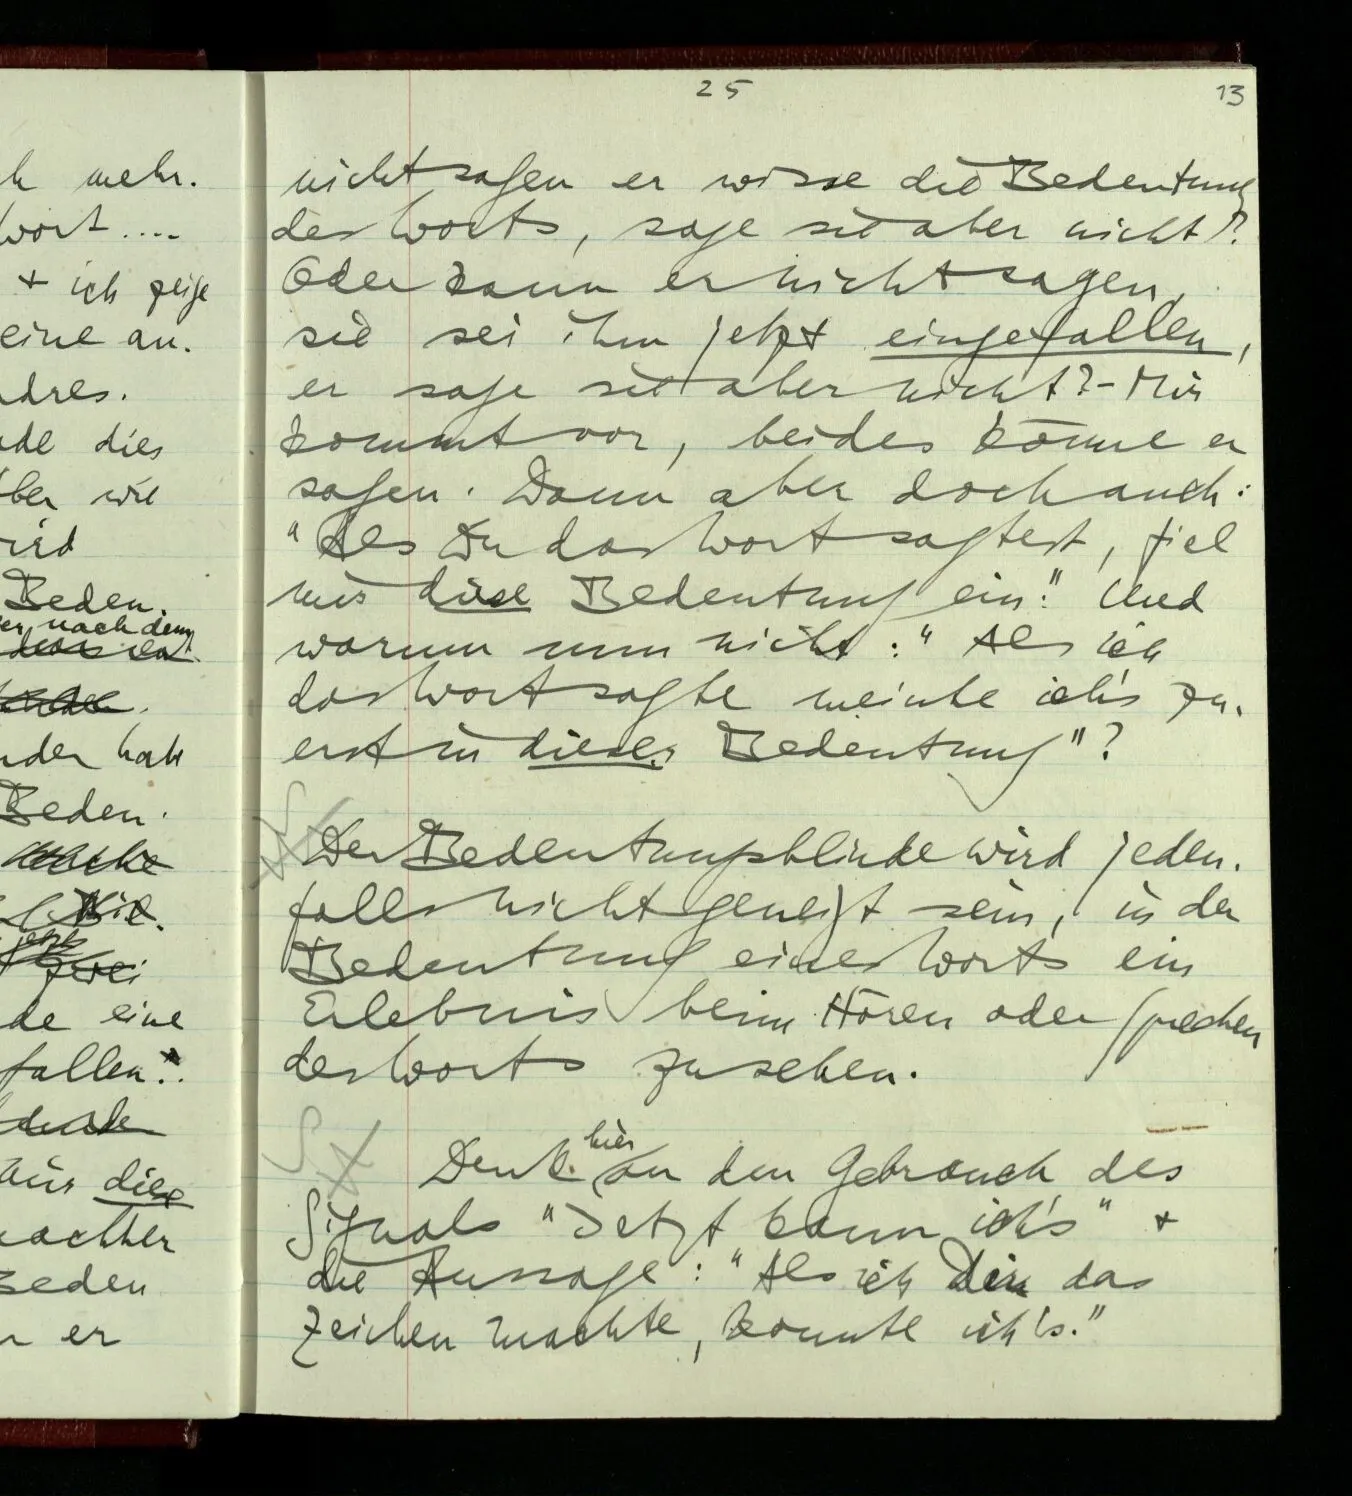 25
13
h mehr.
wort ....
+ ich zeige
eine an.
ndres.
dies
ber wie
ird
Beden.
nach dem
nder hat
Beden.
zwei
de eine
fallen".
diese
nachher
Beden
er
nicht sagen er wisse die Bedeutung
des Worts, sage sie aber nicht?
Oder kann er nicht sagen,
sie sei ihm jetzt eingefallen,
er sage sie aber nicht? – Mir
kommt vor, beides könne er
sagen. Dann aber doch auch:
"Als Du das Wort sagtest, fiel
mir diese Bedeutung ein." Und
warum nun nicht: "Als ich
das Wort sagte meinte ich's zu-
erst in dieser Bedeutung"?
Der Bedeutungsblinde wird jeden-
falls nicht geneigt sein, in der
Bedeutung eines Worts ein
Erlebnis beim Hören oder Sprechen
des Worts zu sehen.
S
hier
Denk an den Gebrauch des
Signals "Jetzt kann ich's" +
die Aussage: "Als ich Dir das
Zeichen machte, konnte ich's."